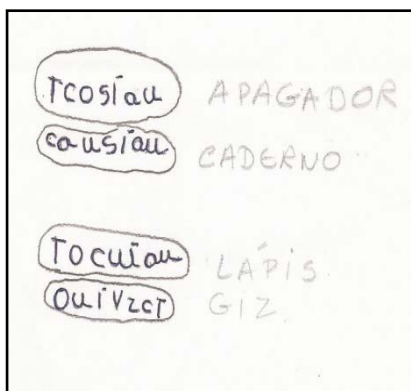 rcosiau APAGADOR
causiau CADERNO
Tocuiau LÁPIS
OuiVzcT GIZ